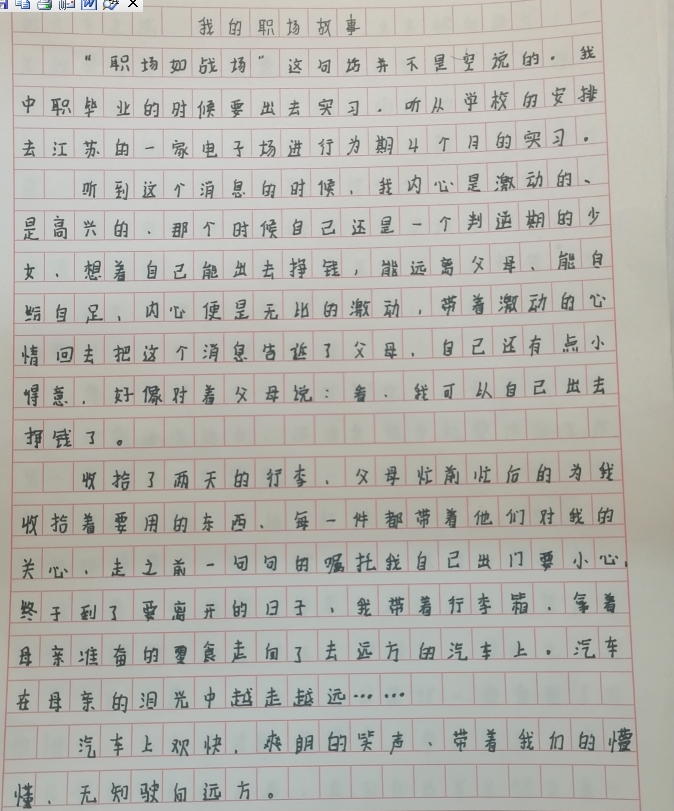 我的职场故事
“职场如战场”这句话并不是空说的。我
中职毕业的时候要出去实习.听从学校的安排
去江苏的一家电子场进行为期4个月的实习。
听到这个消息的时候,我内心是激动的、
是高兴的、那个时候自己还是一个判逆期的少
女、想着自己能出去挣钱,能远离父母、能自
给自足、内心便是无比的激动,带着激动的心
情回去把这个消息告诉了父母、自己还有点小
得意、好像对着父母说:看、我可以自己出去
挣钱了。
收拾了两天的行李、父母忙前忙后的为我
收拾着要用的东西、每一件都带着他们对我的
关心、走之前一句句的嘱托我自己出门要小心,
终于到了要离开的日子、我带着行李箱、拿着
母亲准备的零食走向了去远方的汽车上。汽车
在母亲的泪光中越走越远……
汽车上欢快、爽朗的笑声、带着我们的懵
懂、无知驶向远方。